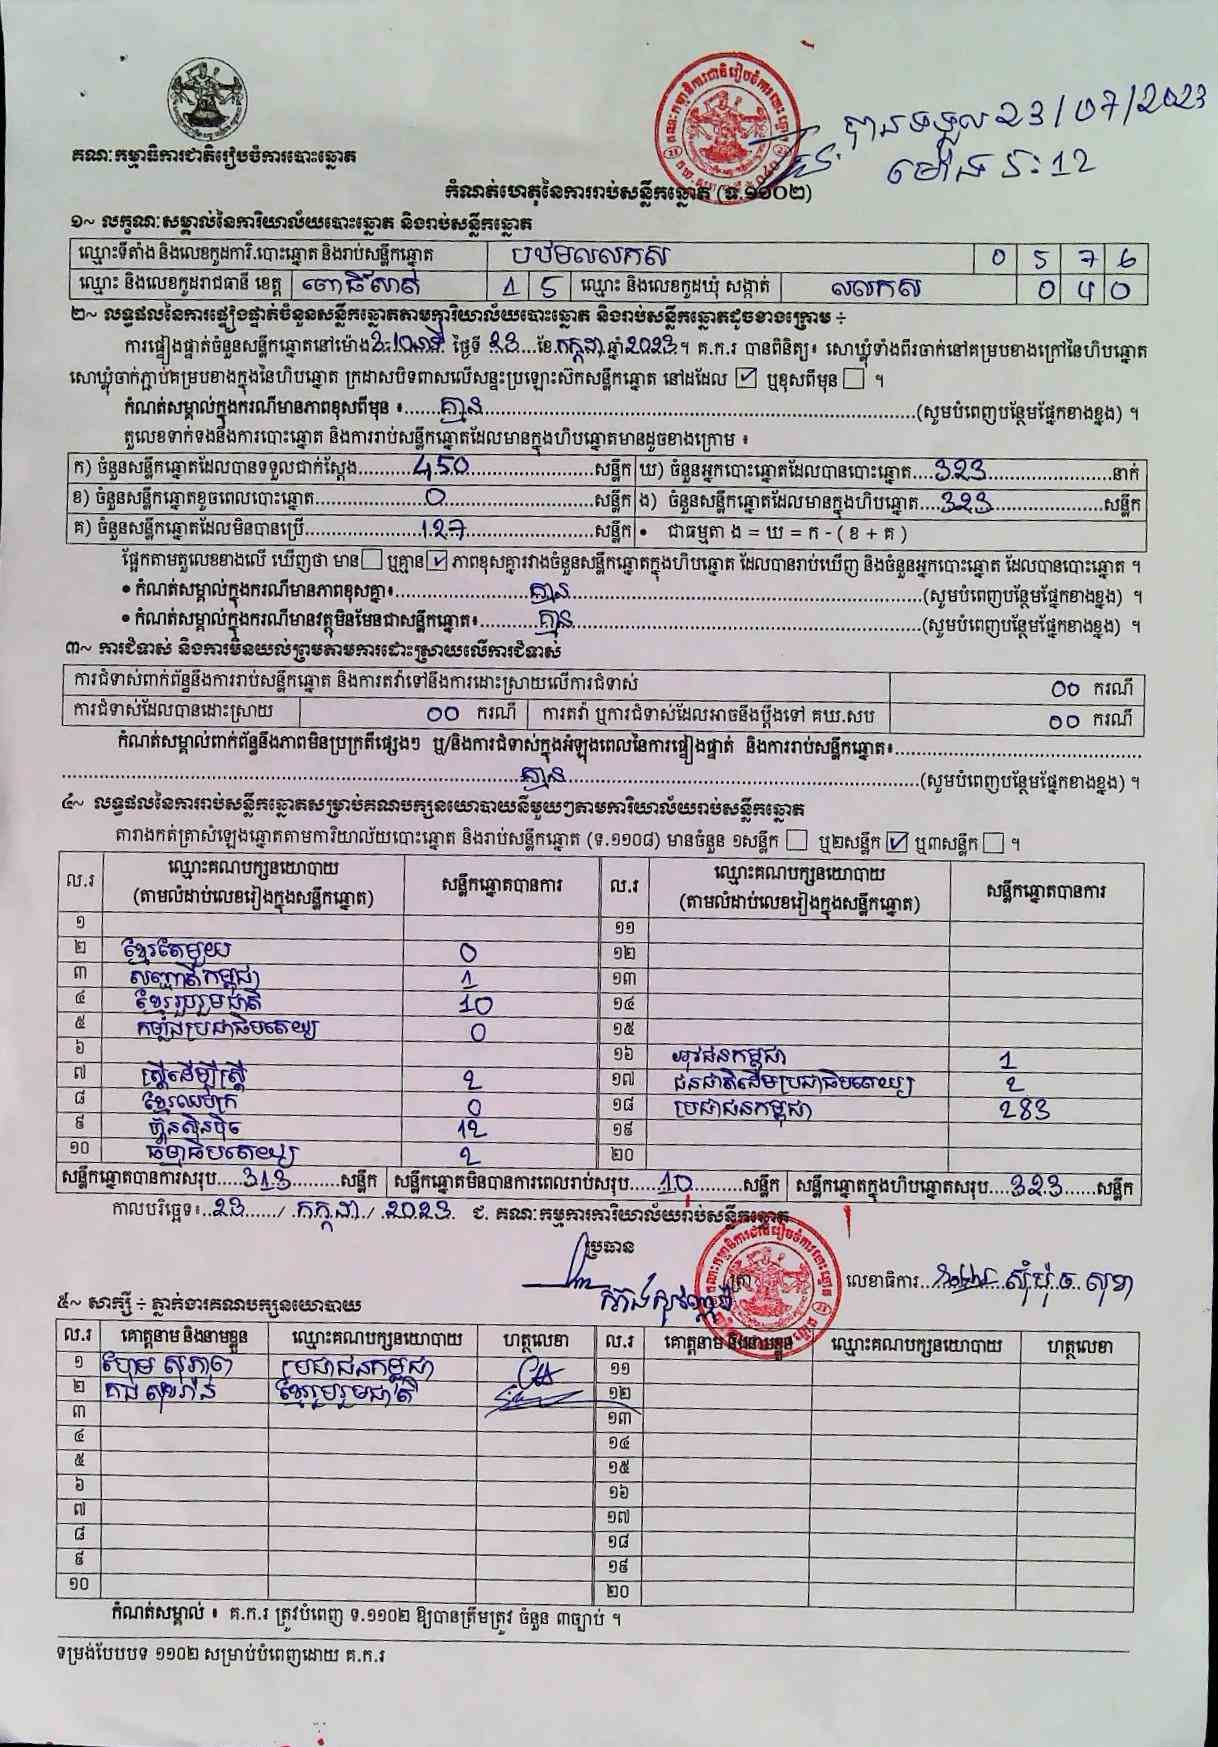 គណៈកម្មាធិការជាតិរៀបចំការបោះឆ្នោត
បានទទួល 23/07/2023
ម៉ោង ៤:12
កំណត់ហេតុនៃការរាប់សន្លឹកឆ្នោត (ទ.១១០២)
១~ លក្ខណៈសម្គាល់នៃការិយាល័យបោះឆ្នោត និងរាប់សន្លឹកឆ្នោត
ឈ្មោះទីតាំង និងលេខកូដការិ.បោះឆ្នោត និងរាប់សន្លឹកឆ្នោត បឋមលលកស 0 5 7 6
ឈ្មោះ និងលេខកូដរាជធានី ខេត្ត ពោធិ៍សាត់ 1 5 ឈ្មោះ និងលេខកូដឃុំ សង្កាត់ លលកស 0 4 0
២~ លទ្ធផលនៃការផ្ទៀងផ្ទាត់ចំនួនសន្លឹកឆ្នោតតាមការិយាល័យបោះឆ្នោត និងរាប់សន្លឹកឆ្នោតដូចខាងក្រោម ÷
ការផ្ទៀងផ្ទាត់ចំនួនសន្លឹកឆ្នោតនៅម៉ោង ថ្ងៃទី 23 ខែ កក្កដា ឆ្នាំ 2023 ។ គ.ក.រ បានពិនិត្យ៖ សោឃ្លុំទាំងពីរចាក់នៅគម្របខាងក្រៅនៃហិបឆ្នោត
សោឃ្លុំចាក់ភ្ជាប់គម្របខាងក្នុងនៃហិបឆ្នោត ក្រដាសបិទពាសលើសន្ទះប្រឡោះស៊កសន្លឹកឆ្នោត នៅដដែល ☑ ឬខុសពីមុន ☐ ។
កំណត់សម្គាល់ក្នុងករណីមានភាពខុសពីមុន ៖ គ្មាន (សូមបំពេញបន្ថែមផ្នែកខាងខ្នង) ។
តួលេខទាក់ទងនឹងការបោះឆ្នោត និងការរាប់សន្លឹកឆ្នោតដែលមានក្នុងហិបឆ្នោតមានដូចខាងក្រោម ៖
ក) ចំនួនសន្លឹកឆ្នោតដែលបានទទួលជាក់ស្តែង 450 សន្លឹក ឃ) ចំនួនអ្នកបោះឆ្នោតដែលបានបោះឆ្នោត 323 នាក់
ខ) ចំនួនសន្លឹកឆ្នោតខូចពេលបោះឆ្នោត 0 សន្លឹក ង) ចំនួនសន្លឹកឆ្នោតដែលមានក្នុងហិបឆ្នោត 323 សន្លឹក
គ) ចំនួនសន្លឹកឆ្នោតដែលមិនបានប្រើ 127 សន្លឹក • ជាធម្មតា ង = ឃ = ក - ( ខ + គ )
ផ្អែកតាមតួលេខខាងលើ ឃើញថា មាន ☐ ឬគ្មាន ☑ ភាពខុសគ្នារវាងចំនួនសន្លឹកឆ្នោតក្នុងហិបឆ្នោត ដែលបានរាប់ឃើញ និងចំនួនអ្នកបោះឆ្នោត ដែលបានបោះឆ្នោត ។
• កំណត់សម្គាល់ក្នុងករណីមានភាពខុសគ្នា៖ គ្មាន (សូមបំពេញបន្ថែមផ្នែកខាងខ្នង) ។
• កំណត់សម្គាល់ក្នុងករណីមានវត្ថុមិនមែនជាសន្លឹកឆ្នោត៖ គ្មាន (សូមបំពេញបន្ថែមផ្នែកខាងខ្នង) ។
៣~ ការជំទាស់ និងការមិនយល់ព្រមតាមការដោះស្រាយលើការជំទាស់
ការជំទាស់ពាក់ព័ន្ធនឹងការរាប់សន្លឹកឆ្នោត និងការតវ៉ាទៅនឹងការដោះស្រាយលើការជំទាស់ 00 ករណី
ការជំទាស់ដែលបានដោះស្រាយ 00 ករណី ការតវ៉ា ឬការជំទាស់ដែលអាចនឹងប្តឹងទៅ គឃ.សប 00 ករណី
កំណត់សម្គាល់ពាក់ព័ន្ធនឹងភាពមិនប្រក្រតីផ្សេងៗ ឬ/និងការជំទាស់ក្នុងអំឡុងពេលនៃការផ្ទៀងផ្ទាត់ និងការរាប់សន្លឹកឆ្នោត៖
គ្មាន (សូមបំពេញបន្ថែមផ្នែកខាងខ្នង) ។
៤~ លទ្ធផលនៃការរាប់សន្លឹកឆ្នោតសម្រាប់គណបក្សនយោបាយនីមួយៗតាមការិយាល័យរាប់សន្លឹកឆ្នោត
តារាងកត់ត្រាសំឡេងឆ្នោតតាមការិយាល័យបោះឆ្នោត និងរាប់សន្លឹកឆ្នោត (ទ.១១០៨) មានចំនួន ១សន្លឹក ☐ ឬ២សន្លឹក ☑ ឬ៣សន្លឹក ☐ ។
ល.រ ឈ្មោះគណបក្សនយោបាយ (តាមលំដាប់លេខរៀងក្នុងសន្លឹកឆ្នោត) សន្លឹកឆ្នោតបានការ ល.រ ឈ្មោះគណបក្សនយោបាយ (តាមលំដាប់លេខរៀងក្នុងសន្លឹកឆ្នោត) សន្លឹកឆ្នោតបានការ
១ ១១
២ ខ្មែរតែមួយ 0 ១២
៣ សញ្ជាតិកម្ពុជា 1 ១៣
៤ ខ្មែររួបរួមជាតិ 10 ១៤
៥ កម្លាំងប្រជាធិបតេយ្យ 0 ១៥
៦ ១៦ យុវជនកម្ពុជា 1
៧ ស្ត្រីដើម្បីស្ត្រី 2 ១៧ ជនជាតិដើមប្រជាធិបតេយ្យ 2
៨ ខ្មែរឈប់ក្រ 0 ១៨ ប្រជាជនកម្ពុជា 283
៩ ហ៊្វុនស៊ិនប៉ិច 12 ១៩
១០ ធម្មាធិបតេយ្យ 2 ២០
សន្លឹកឆ្នោតបានការសរុប 313 សន្លឹក សន្លឹកឆ្នោតមិនបានការពេលរាប់សរុប 10 សន្លឹក សន្លឹកឆ្នោតក្នុងហិបឆ្នោតសរុប 323 សន្លឹក
កាលបរិច្ឆេទ៖ 23 / កក្កដា / 2023 ជ. គណៈកម្មការការិយាល័យរាប់សន្លឹកឆ្នោត
ប្រធាន
ត្រា លេខាធិការ
៥~ សាក្សី ÷ ភ្នាក់ងារគណបក្សនយោបាយ
ល.រ គោត្តនាម និងនាមខ្លួន ឈ្មោះគណបក្សនយោបាយ ហត្ថលេខា ល.រ គោត្តនាម និងនាមខ្លួន ឈ្មោះគណបក្សនយោបាយ ហត្ថលេខា
១ ហែម សុភាព ប្រជាជនកម្ពុជា ១១
២ ខ្មែររួបរួមជាតិ ១២
៣ ១៣
៤ ១៤
៥ ១៥
៦ ១៦
៧ ១៧
៨ ១៨
៩ ១៩
១០ ២០
កំណត់សម្គាល់ ៖ គ.ក.រ ត្រូវបំពេញ ទ.១១០២ ឱ្យបានត្រឹមត្រូវ ចំនួន ៣ច្បាប់ ។
ទម្រង់បែបបទ ១១០២ សម្រាប់បំពេញដោយ គ.ក.រ